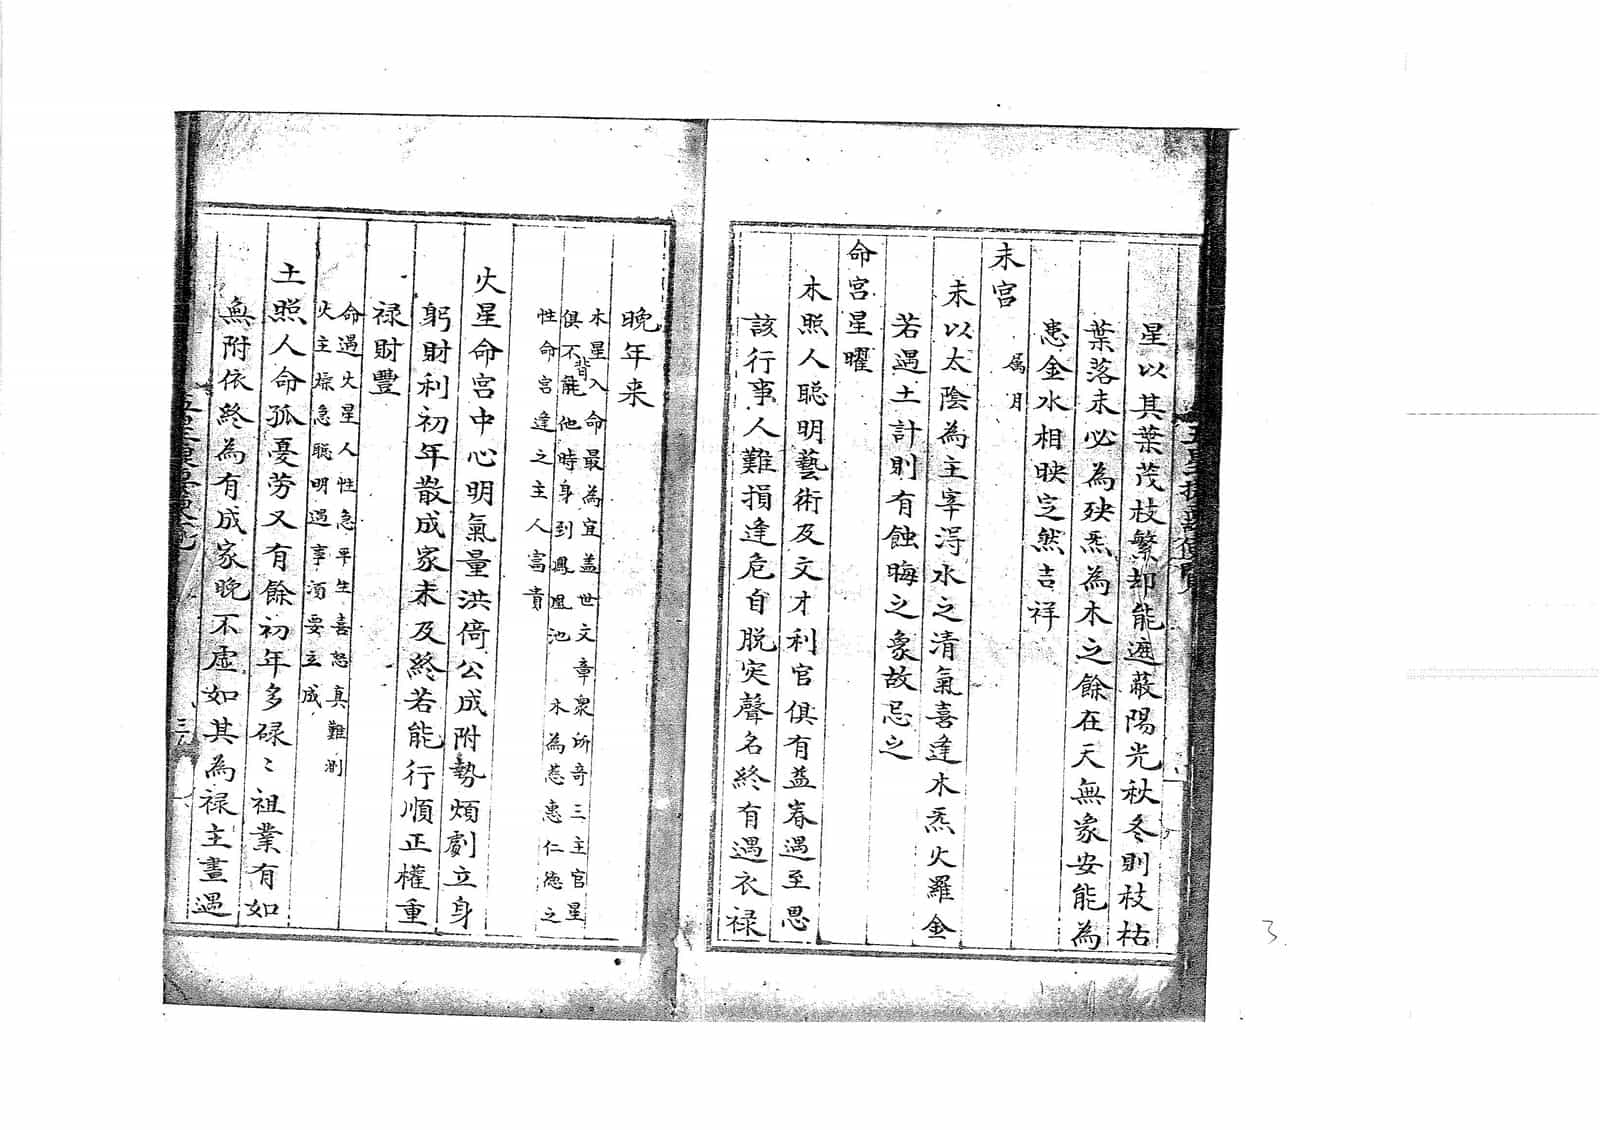 星以其葉茂枝繁却能遮蔽陽光秋冬則枝枯
葉落未必為殃炁為木之餘在天無象安能為
患金水相映定然吉祥
未宮 属月
未以太陰為主宰得水之清氣喜逢木炁火羅金
若遇土計則有蝕晦之象故忌之
命宮星曜
木照人聡明藝術及文才利官俱有益春遇至思
該行事人難損逢危自脱突聲名終有遇衣禄
晚年来
木星入命最為宜盖世文章衆所奇三主官星
俱不背能他時身到鳳凰池 木為慈惠仁德之
性命宮逢之主人富貴
火星命宮中心明氣量洪倚公成附勢煩劇立身
躬財利初年散成家未及終若能行順正權重
禄財豐
命遇火星人性急平生喜怒真難測
火主燥急聡明遇事須要立成
土照人命孤憂劳又有餘初年多碌〻祖業有如
無附依終為有成家晚不虛如其為禄主晝遇
三
3